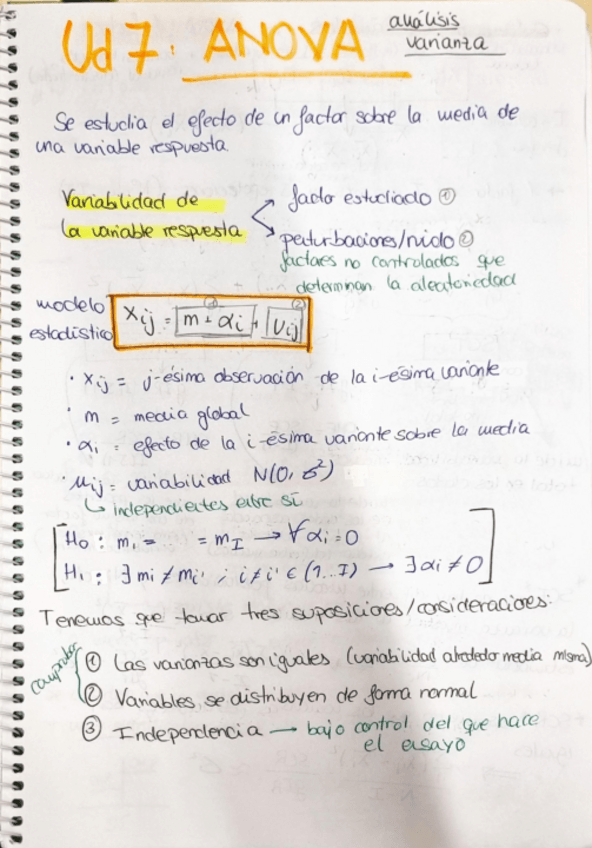 Ud 7: ANOVA análisis varianza
Se estudia el efecto de un factor sobre la media de
una variable respuesta
Variabilidad de
la variable respuesta
factor estudiado ①
perturbaciones/ruido ②
factores no controlados que
determinan la aleatoriedad
modelo
estadístico
① ②
Xij = m + αi + Uij
· Xij = j-ésima observación de la i-ésima variante
· m = media global
· αi = efecto de la i-ésima variante sobre la media
· μij = variabilidad N(0, σ²)
↳ independientes entre sí
H₀: m₁ = = m_I → ∀ αi = 0
H₁: ∃ mi ≠ mi' ; i ≠ i' ∈ (1..I) → ∃ αi ≠ 0
Tenemos que tomar tres suposiciones/consideraciones:
comprobar
① Las varianzas son iguales (variabilidad alrededor media misma)
② Variables se distribuyen de forma normal
③ Independencia → bajo control del que hace
el ensayo